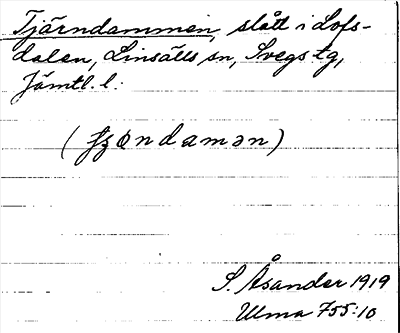 Tjärndammen, slått i Lofs-
dalen, Linsälls sn, Svegs tg,
Jämtl. l.
ndamən)
S. Åsander 1919
Ulma 755:10